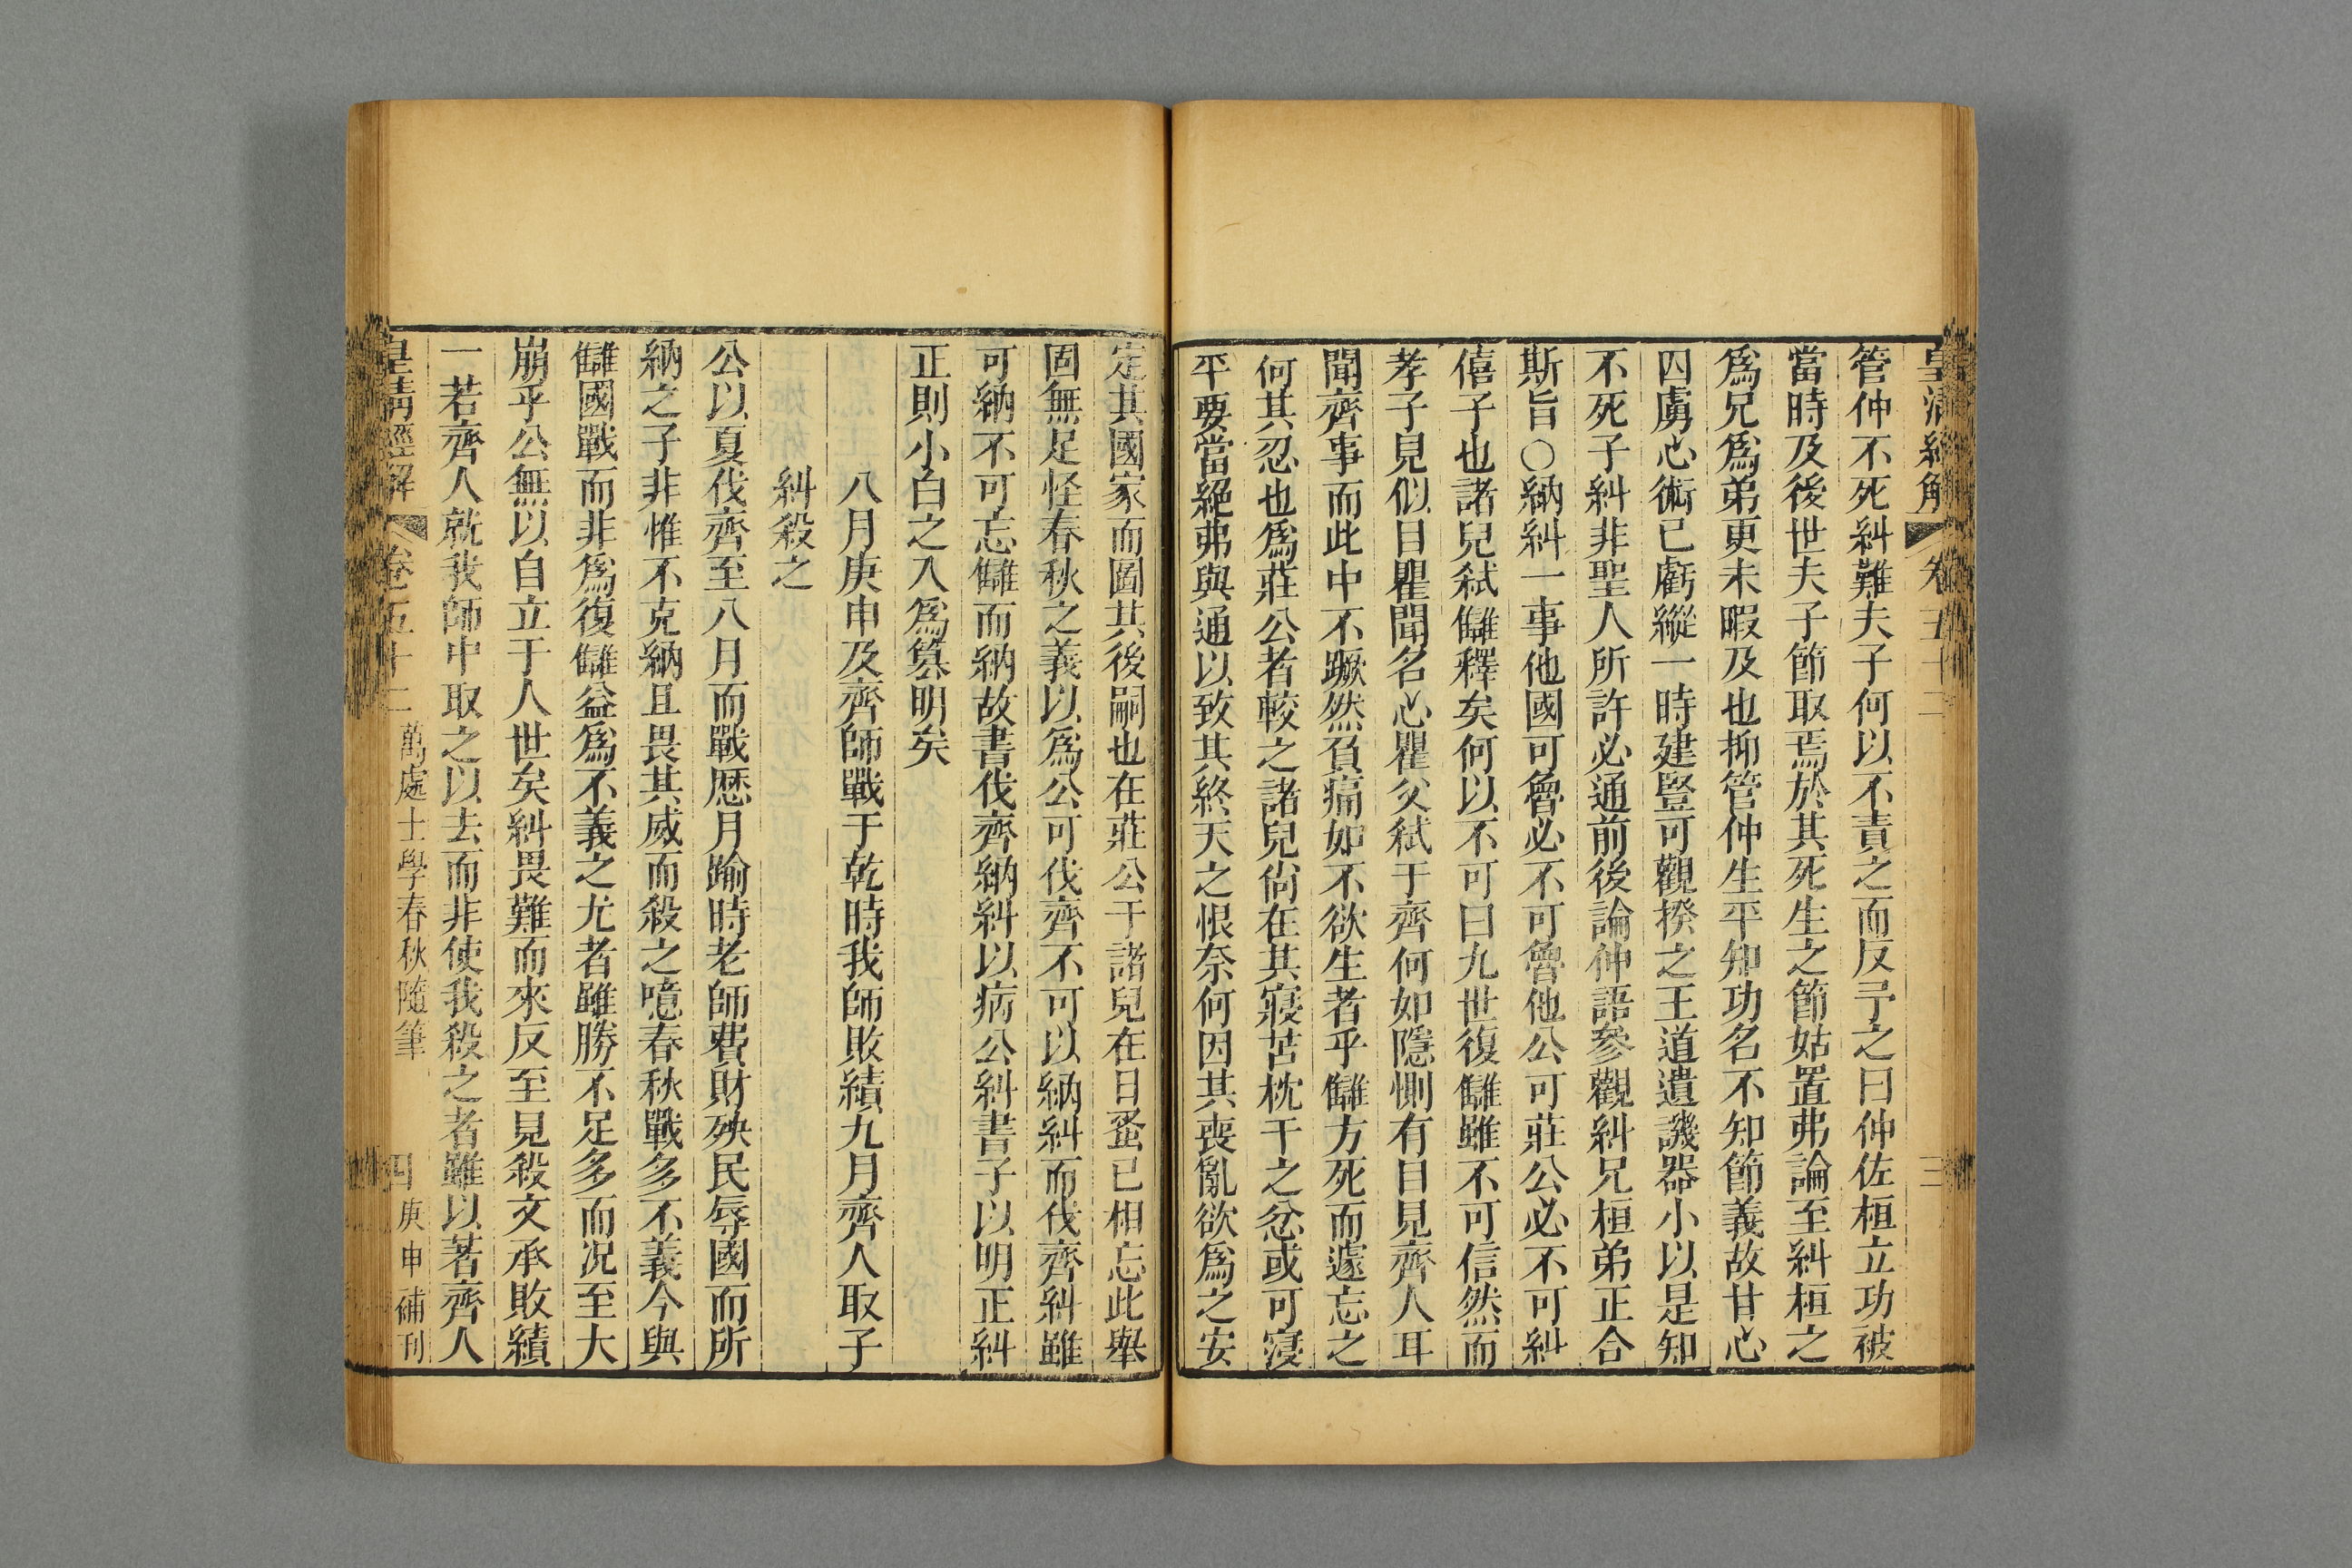 皇清經解 卷五十二 三
管仲不死糾難夫子何以不責之而反予之曰仲佐桓立功被
當時及後世夫子節取焉於其死生之節姑置弗論至糾桓之
爲兄爲弟更未暇及也抑管仲生平知功名不知節義故甘心
囚虜心術已虧縱一時建豎可觀揆之王道遺譏器小以是知
不死子糾非聖人所許必通前後論仲語參觀糾兄桓弟正合
斯旨○納糾一事他國可魯必不可魯他公可莊公必不可糾
僖子也諸兒弒讎釋矣何以不可曰九世復讎雖不可信然而
孝子見似目瞿聞名心瞿父弒于齊何如隱惻有目見齊人耳
聞齊事而此中不蹶然負痛如不欲生者乎讎方死而遽忘之
何其忍也爲莊公者較之諸兒尙在其寢苫枕干之忿或可寖
平要當絕弗與通以致其終天之恨奈何因其喪亂欲爲之安
定其國家而圖其後嗣也在莊公于諸兒在日蚤已相忘此舉
固無足怪春秋之義以爲公可伐齊不可以納糾而伐齊糾雖
可納不可忘讎而納故書伐齊納糾以病公糾書子以明正糾
正則小白之入爲篡明矣
八月庚申及齊師戰于乾時我師敗績九月齊人取子
糾殺之
公以夏伐齊至八月而戰歷月踰時老師費財殃民辱國而所
納之子非惟不克納且畏其威而殺之噫春秋戰多不義今與
讎國戰而非爲復讎益爲不義之尤者雖勝不足多而況至大
崩乎公無以自立于人世矣糾畏難而來反至見殺文承敗績
一若齊人就我師中取之以去而非使我殺之者雖以著齊人
皇清經解 卷五十二 萬處士學春秋隨筆 四 庚申補刊